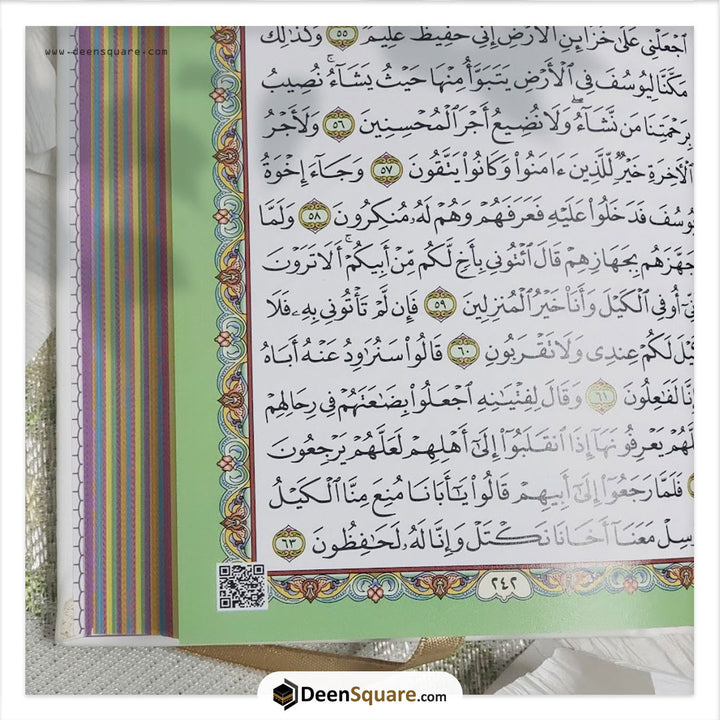 www.deensquare.com
ٱجْعَلْنِى عَلَىٰ خَزَآئِنِ ٱلْأَرْضِ إِنِّى حَفِيظٌ عَلِيمٌ ٥٥ وَكَذَٰلِكَ
مَكَّنَّا لِيُوسُفَ فِى ٱلْأَرْضِ يَتَبَوَّأُ مِنْهَا حَيْثُ يَشَآءُ ۚ نُصِيبُ
بِرَحْمَتِنَا مَن نَّشَآءُ ۖ وَلَا نُضِيعُ أَجْرَ ٱلْمُحْسِنِينَ ٥٦ وَلَأَجْرُ
ٱلْـَٔاخِرَةِ خَيْرٌ لِّلَّذِينَ ءَامَنُوا۟ وَكَانُوا۟ يَتَّقُونَ ٥٧ وَجَآءَ إِخْوَةُ
يُوسُفَ فَدَخَلُوا۟ عَلَيْهِ فَعَرَفَهُمْ وَهُمْ لَهُۥ مُنكِرُونَ ٥٨ وَلَمَّا
جَهَّزَهُم بِجَهَازِهِمْ قَالَ ٱئْتُونِى بِأَخٍ لَّكُم مِّنْ أَبِيكُمْ ۚ أَلَا تَرَوْنَ
أُوفِى ٱلْكَيْلَ وَأَنَا۠ خَيْرُ ٱلْمُنزِلِينَ ٥٩ فَإِن لَّمْ تَأْتُونِى بِهِۦ فَلَا
كَيْلَ لَكُمْ عِندِى وَلَا تَقْرَبُونِ ٦٠ قَالُوا۟ سَنُرَٰوِدُ عَنْهُ أَبَاهُ
وَإِنَّا لَفَٰعِلُونَ ٦١ وَقَالَ لِفِتْيَٰنِهِ ٱجْعَلُوا۟ بِضَٰعَتَهُمْ فِى رِحَالِهِمْ
لَعَلَّهُمْ يَعْرِفُونَهَآ إِذَا ٱنقَلَبُوٓا۟ إِلَىٰٓ أَهْلِهِمْ لَعَلَّهُمْ يَرْجِعُونَ
فَلَمَّا رَجَعُوٓا۟ إِلَىٰٓ أَبِيهِمْ قَالُوا۟ يَٰٓأَبَانَا مُنِعَ مِنَّا ٱلْكَيْلُ
فَأَرْسِلْ مَعَنَآ أَخَانَا نَكْتَلْ وَإِنَّا لَهُۥ لَحَٰفِظُونَ ٦٣
٢٤٢
DeenSquare.com